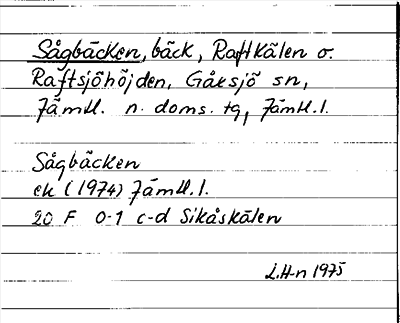 Sågbäcken, bäck, Raftkälen o.
Raftsjöhöjden, Gåxsjö sn,
Jämtl. n. doms. tg, Jämtl. l.
Sågbäcken
ek (1974) Jämtl. l.
20 F 0-1 c-d Sikåskälen
L.H-n 1975